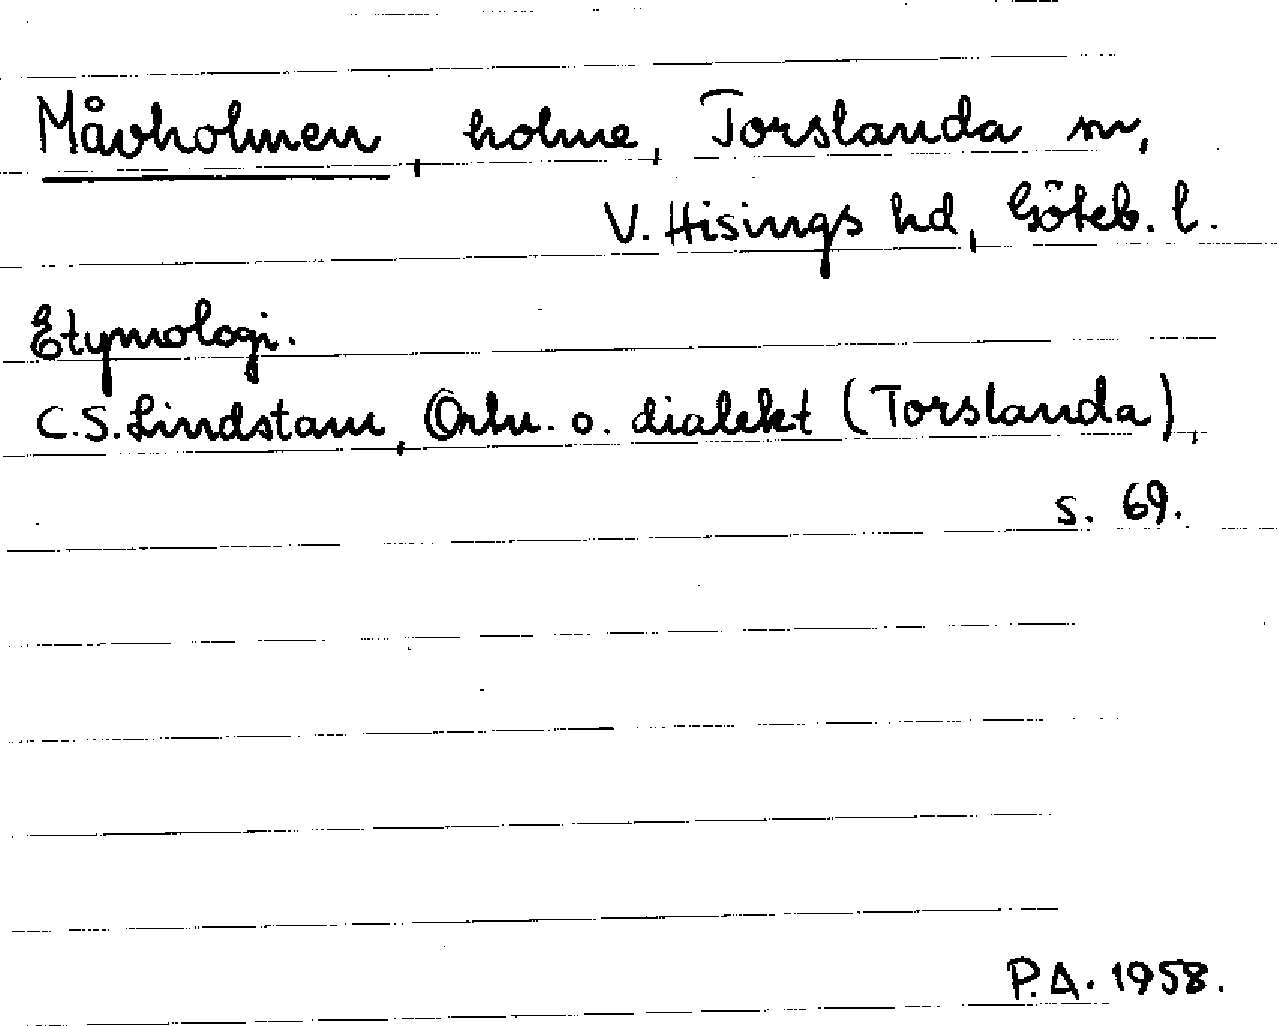 Måvholmen, holme, Torslanda sn,
V. Hisings hd, Göteb. l.
Etymologi.
C.S. Lindstam, Ortn. o. dialekt (Torslanda),
s. 69.
P.A. 1958.